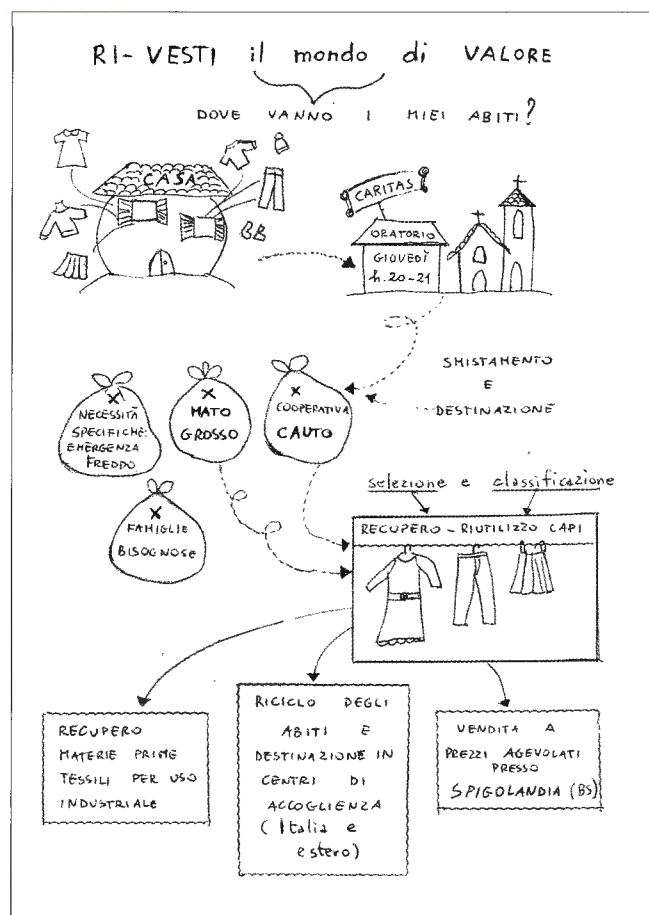 RI-VESTI il mondo di VALORE
DOVE VANNO I MIEI ABITI?
CASA
CARITAS
ORATORIO
GIOVEDÌ
h.20-21
SMISTAMENTO
E
DESTINAZIONE
X
NECESSITÀ
SPECIFICHE:
EMERGENZA
FREDDO
X
MATO
GROSSO
X
COOPERATIVA
CAUTO
X
FAMIGLIE
BISOGNOSE
selezione e classificazione
RECUPERO - RIUTILIZZO CAPI
RECUPERO
MATERIE PRIME
TESSILI PER USO
INDUSTRIALE
RICICLO DEGLI
ABITI E
DESTINAZIONE IN
CENTRI DI
ACCOGLIENZA
(Italia e
estero)
VENDITA A
PREZZI AGEVOLATI
PRESSO
SPIGOLANDIA (BS)